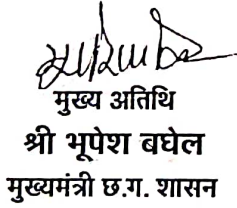 मुख्य अतिथि
श्री भूपेश बघेल
मुख्यमंत्री छ.ग. शासन